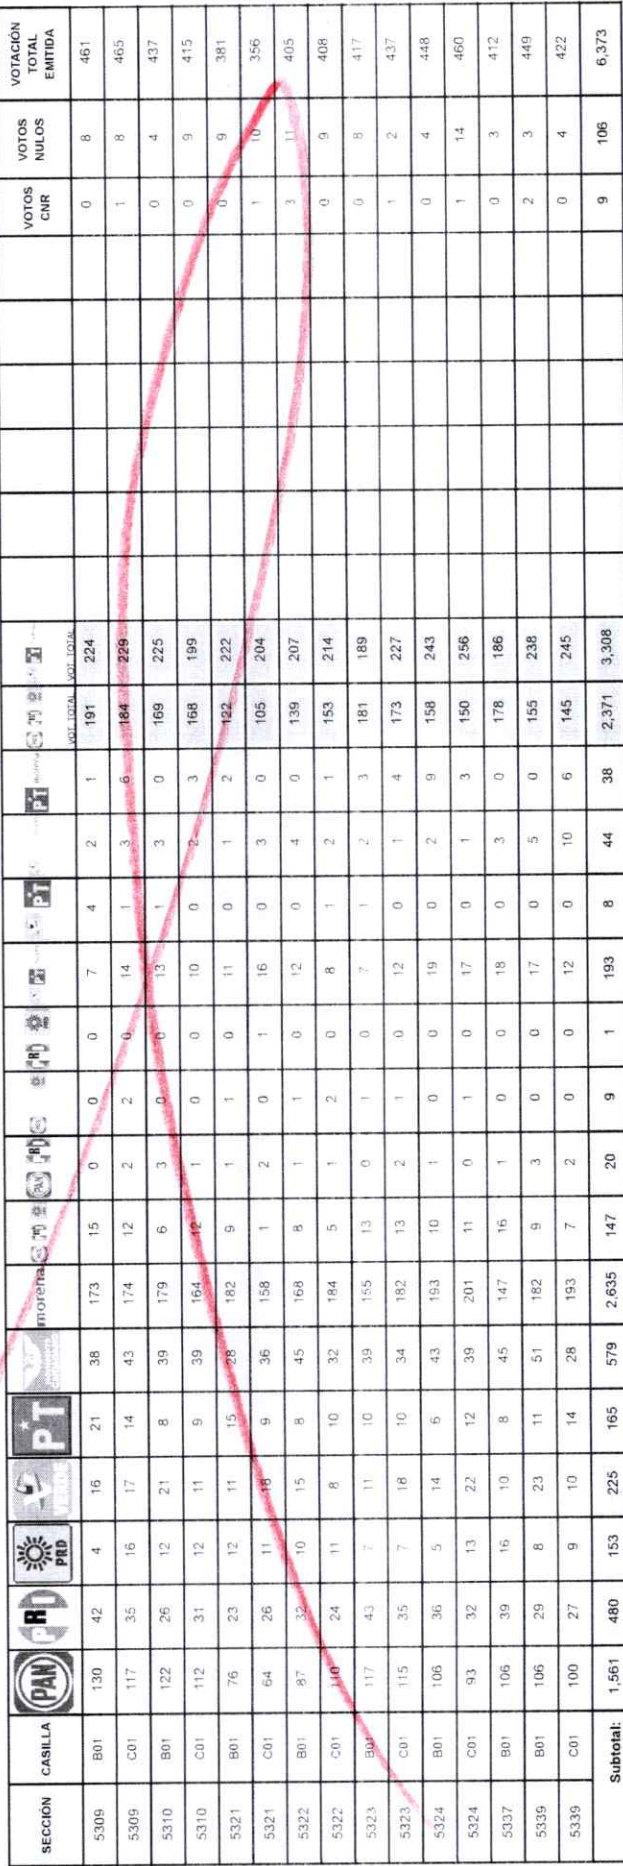 SECCIÓN CASILLA PAN PRD PRD VERDE PT morena VOT. TOTAL VOT. TOTAL VOTOS CNR VOTOS NULOS VOTACIÓN TOTAL EMITIDA
5309 B01 130 42 4 16 21 38 173 15 0 0 0 7 4 2 1 191 224 0 8 461
5309 C01 117 35 16 17 14 43 174 12 2 2 0 14 1 3 6 184 229 1 8 465
5310 B01 122 26 12 21 8 39 179 6 3 0 0 13 1 3 0 169 225 0 4 437
5310 C01 112 31 12 11 9 39 164 12 1 0 0 10 0 2 3 168 199 0 9 415
5321 B01 76 23 12 11 15 28 182 9 1 1 0 11 0 1 2 122 222 0 9 381
5321 C01 64 26 11 18 9 36 158 1 2 0 1 16 0 3 0 105 204 1 10 356
5322 B01 87 32 10 15 8 45 168 8 1 1 0 12 0 4 0 139 207 3 11 405
5322 C01 110 24 11 8 10 32 184 5 1 2 0 8 1 2 1 153 214 0 9 408
5323 B01 117 43 7 11 10 39 155 13 0 1 0 7 1 2 3 181 189 0 8 417
5323 C01 115 35 7 18 10 34 182 13 2 1 0 12 0 1 4 173 227 1 2 437
5324 B01 106 36 5 14 6 43 193 10 1 0 0 19 0 2 9 158 243 0 4 448
5324 C01 93 32 13 22 12 39 201 11 0 1 0 17 0 1 3 150 256 1 14 460
5337 B01 106 39 16 10 8 45 147 16 1 0 0 18 0 3 0 178 186 0 3 412
5339 B01 106 29 8 23 11 51 182 9 3 0 0 17 0 5 0 155 238 2 3 449
5339 C01 100 27 9 10 14 28 193 7 2 0 0 12 0 10 6 145 245 0 4 422
Subtotal: 1,561 480 153 225 165 579 2,635 147 20 9 1 193 8 44 38 2,371 3,308 9 106 6,373